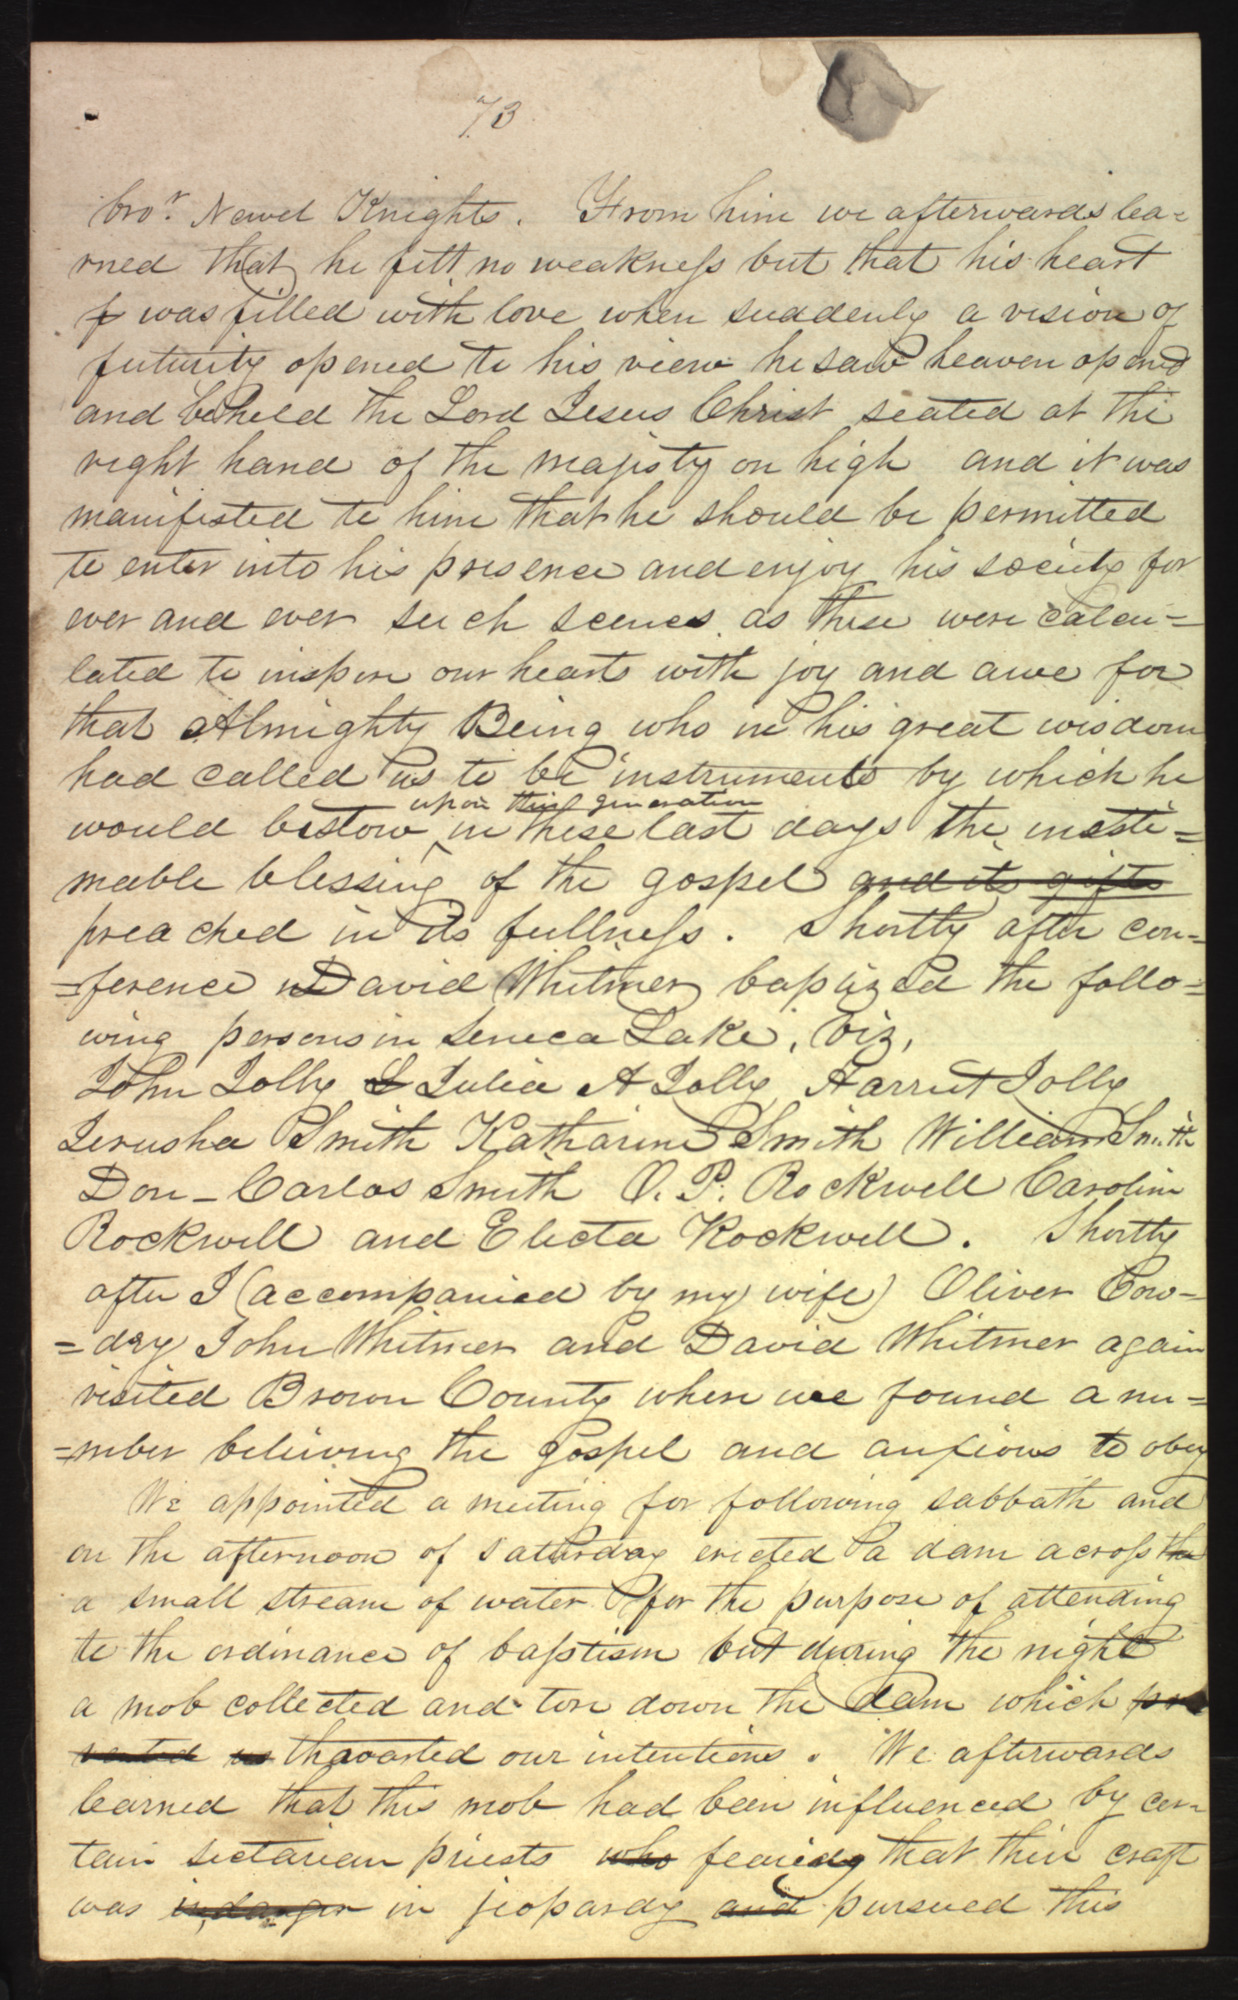 73
bror. Newel Knights. From him we afterwards lea=
rned that he felt no weakness but that his heart
f was filled with love when suddenly a vision of
futurity opened to his view he saw heaven opened
and beheld the Lord Jesus Christ seated at the
right hand of the majisty on high and it was
manifested to him that he should be permitted
to enter into his presence and enjoy his society for
ever and ever such scenes as these were calcu=
lated to inspire our hearts with joy and awe for
that Almighty Being who in his great wisdom
had called us to be instruments by which he
upon this generation
would bestow ^ in these last days the inesti=
mable blessing of the gospel and its gifts
preached in its fullness. Shortly after con=
=ference David Whitmer baptized the follo=
wing persons in Seneca Lake, viz,
John Jolly J Julia A Jolly Harriet Jolly
Jerusha Smith Katharine Smith William Smith
Don-Carlos Smith O. P. Rockwell Caroline
Rockwell and Electa Rockwell. Shortly
after I (accompanied by my wife) Oliver Cow=
=dry John Whitmer and David Whitmer again
visited Brown County where we found a nu=
=mber believing the gospel and anxious to obey
We appointed a meeting for following sabbath and
on the afternoon of saturday erected a dam across the
a small stream of water for the purpose of attending
to the ordinance of baptism but during the night
a mob collected and tore down the dam which pre
vented us thawarted our intentions. We afterwards
learned that this mob had been influenced by cer=
tain sectarian priests who fearing that their craft
was in danger in jeopardy and pursued this